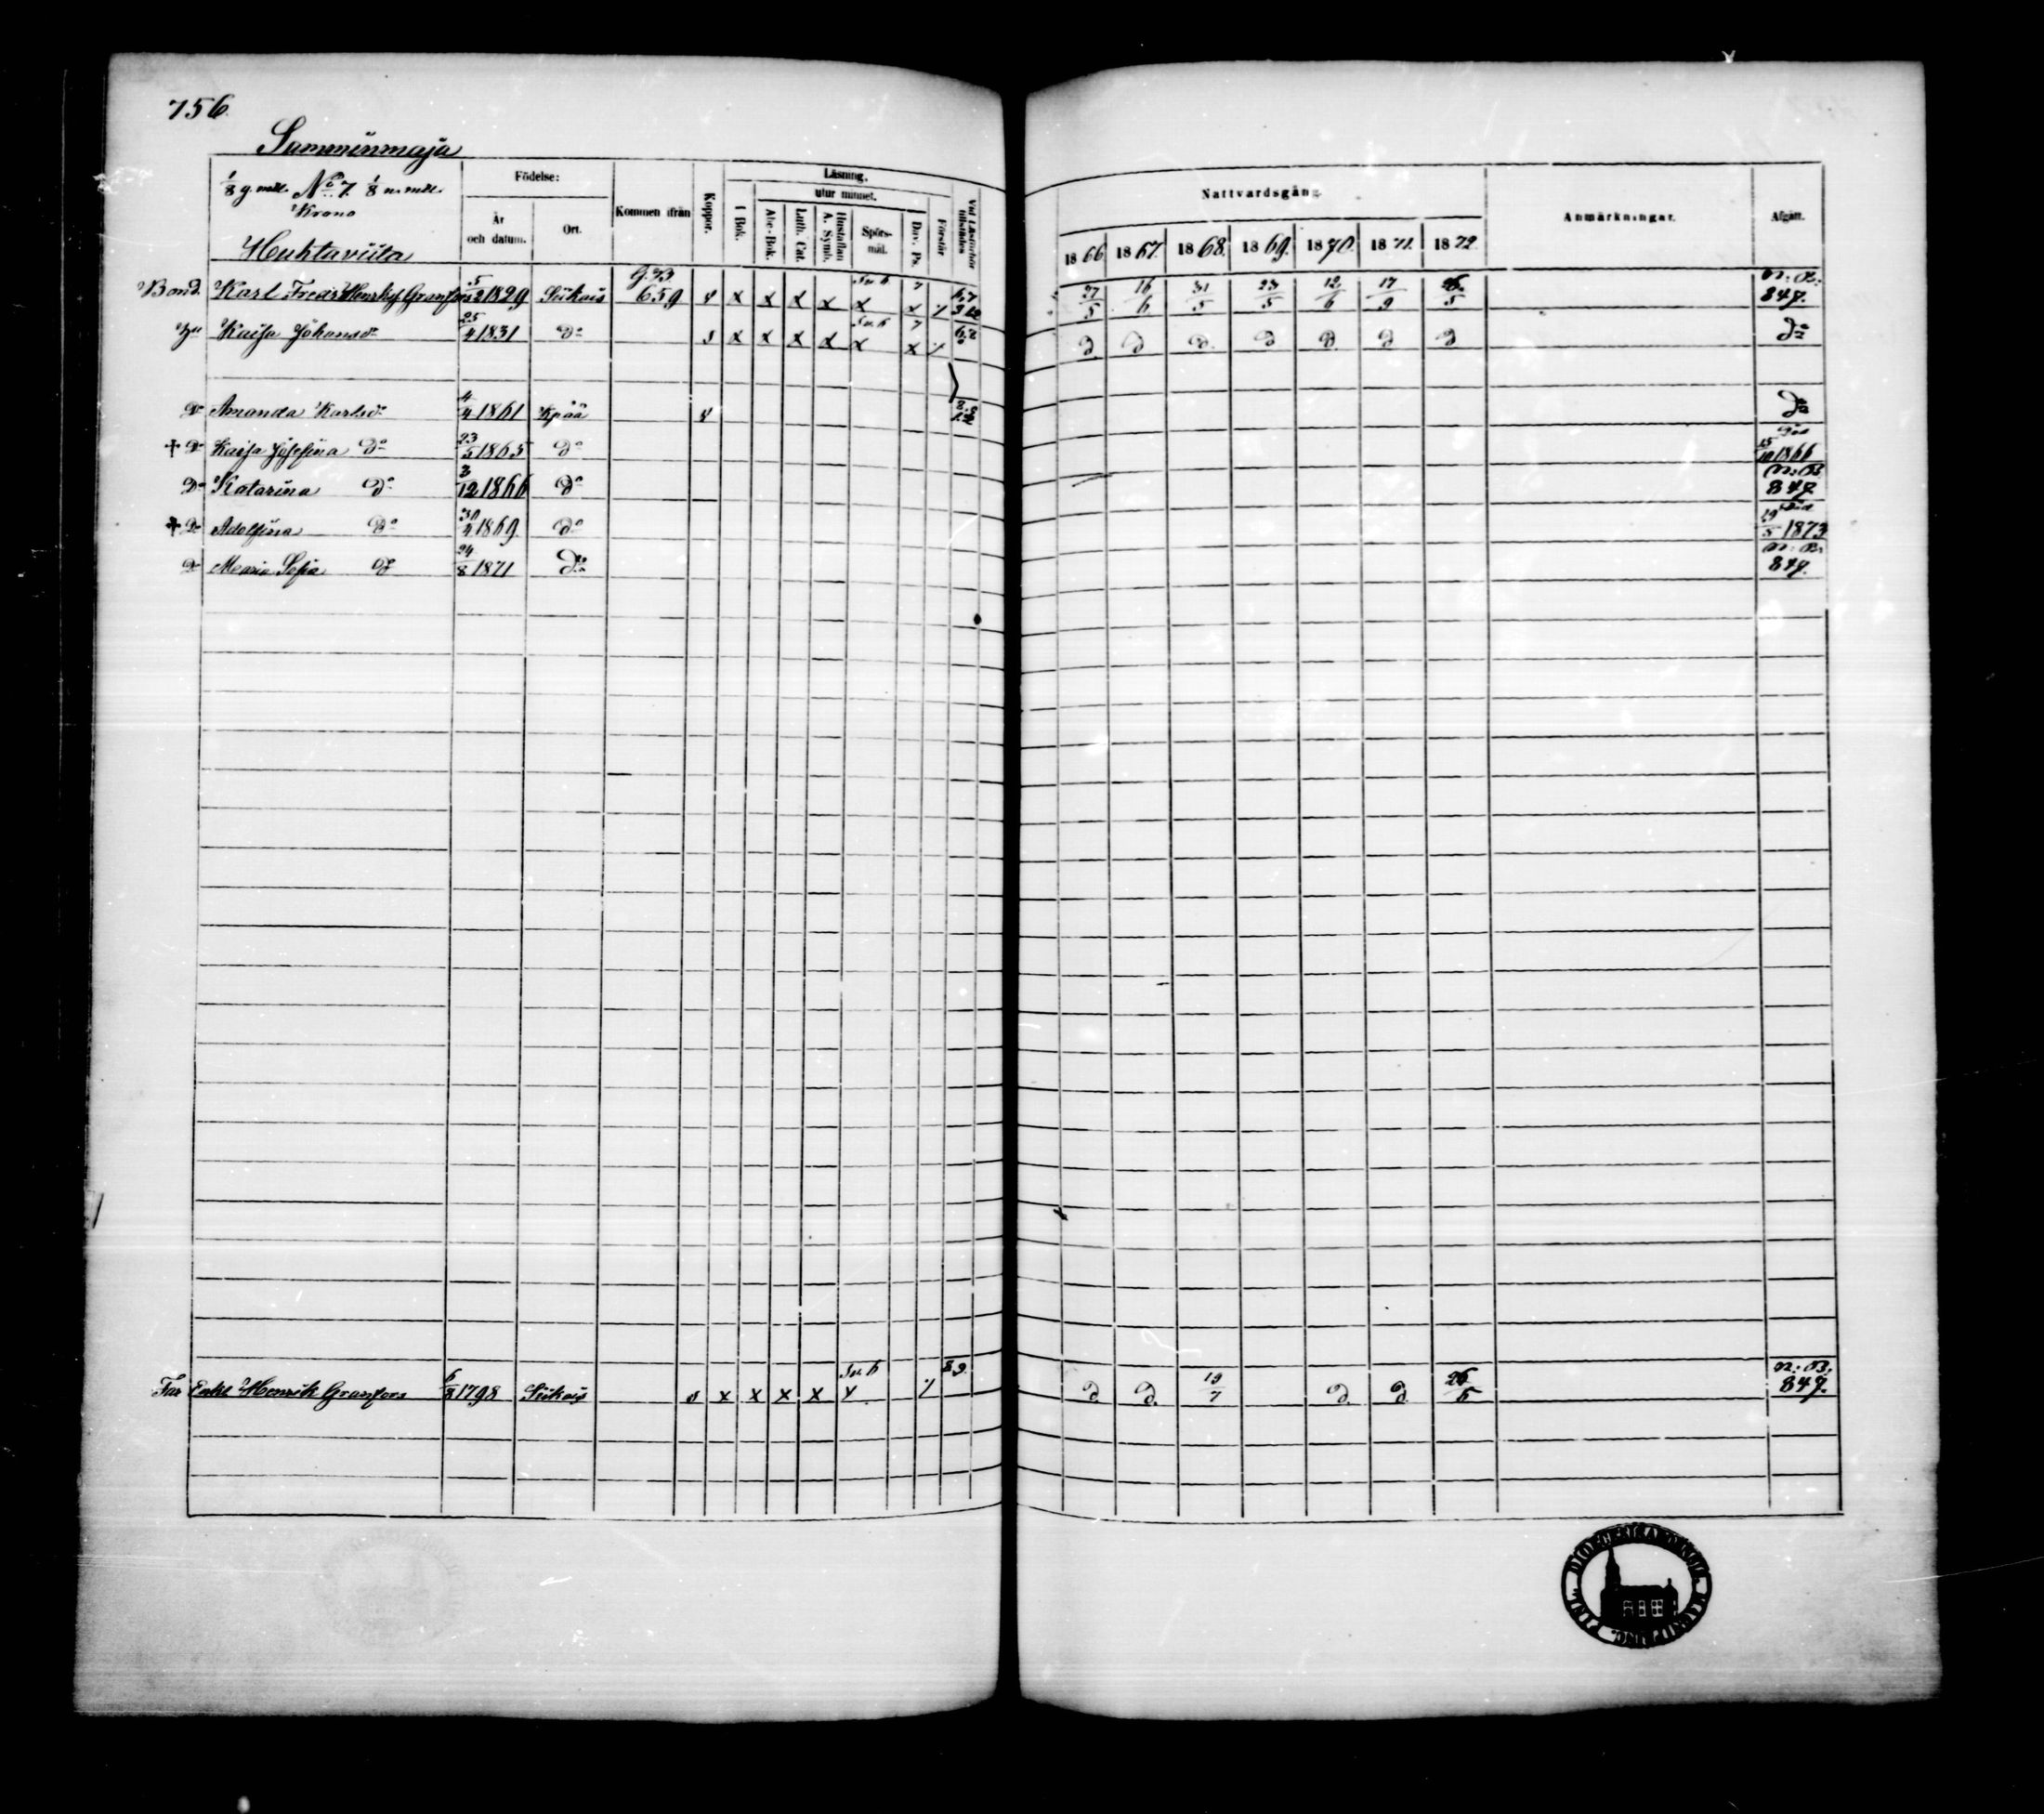 756.
Summinmaja
1/8 g. mtl. No 7 1/8 n. mtl.
Krono
Huhtaviita
Födelse:
År och datum.
Ort.
Kommen ifrån
Koppor.
Läsning.
I Bok.
utur minnet.
Abc-Bok.
Luth. Cat.
Hustaflan A. Symb.
Spörs-mål.
Dav. Ps.
Förstår
Vid Läsförhör tillstädes
Nattvardsgång.
1866 1867. 1868. 1869. 1870. 1871. 1872.
Anmärkningar.
Afgått.
Bond. Karl Fredr Henriks Granfors 5/12 1829 Siikais G. B. 659 v x x x x x x 27/5 16/6 31/5 23/5 12/6 17/9 26/5 N: B: 847.
Hu Kaisa Johansdr 25/4 1831 do s x x x x x x d d d d d d d do
Dr Amanda Karlsdr 4/4 1861 Kpää v do
+ Dr Kaisa Josefina do 23/5 1865 do Död 15/10 1866
Dr Katarina do 3/12 1866 do N: B: 847
+ Dr Adolfina do 30/4 1869 do Död 19/5 1873
Dr Maria Sofia do 24/8 1871 do N: B: 847.
Far Enkl Henrik Granfors 6/8 1798 Siikais s x x x x x 89. d. d. 19/7 d. d. 26/5 N: B: 847.